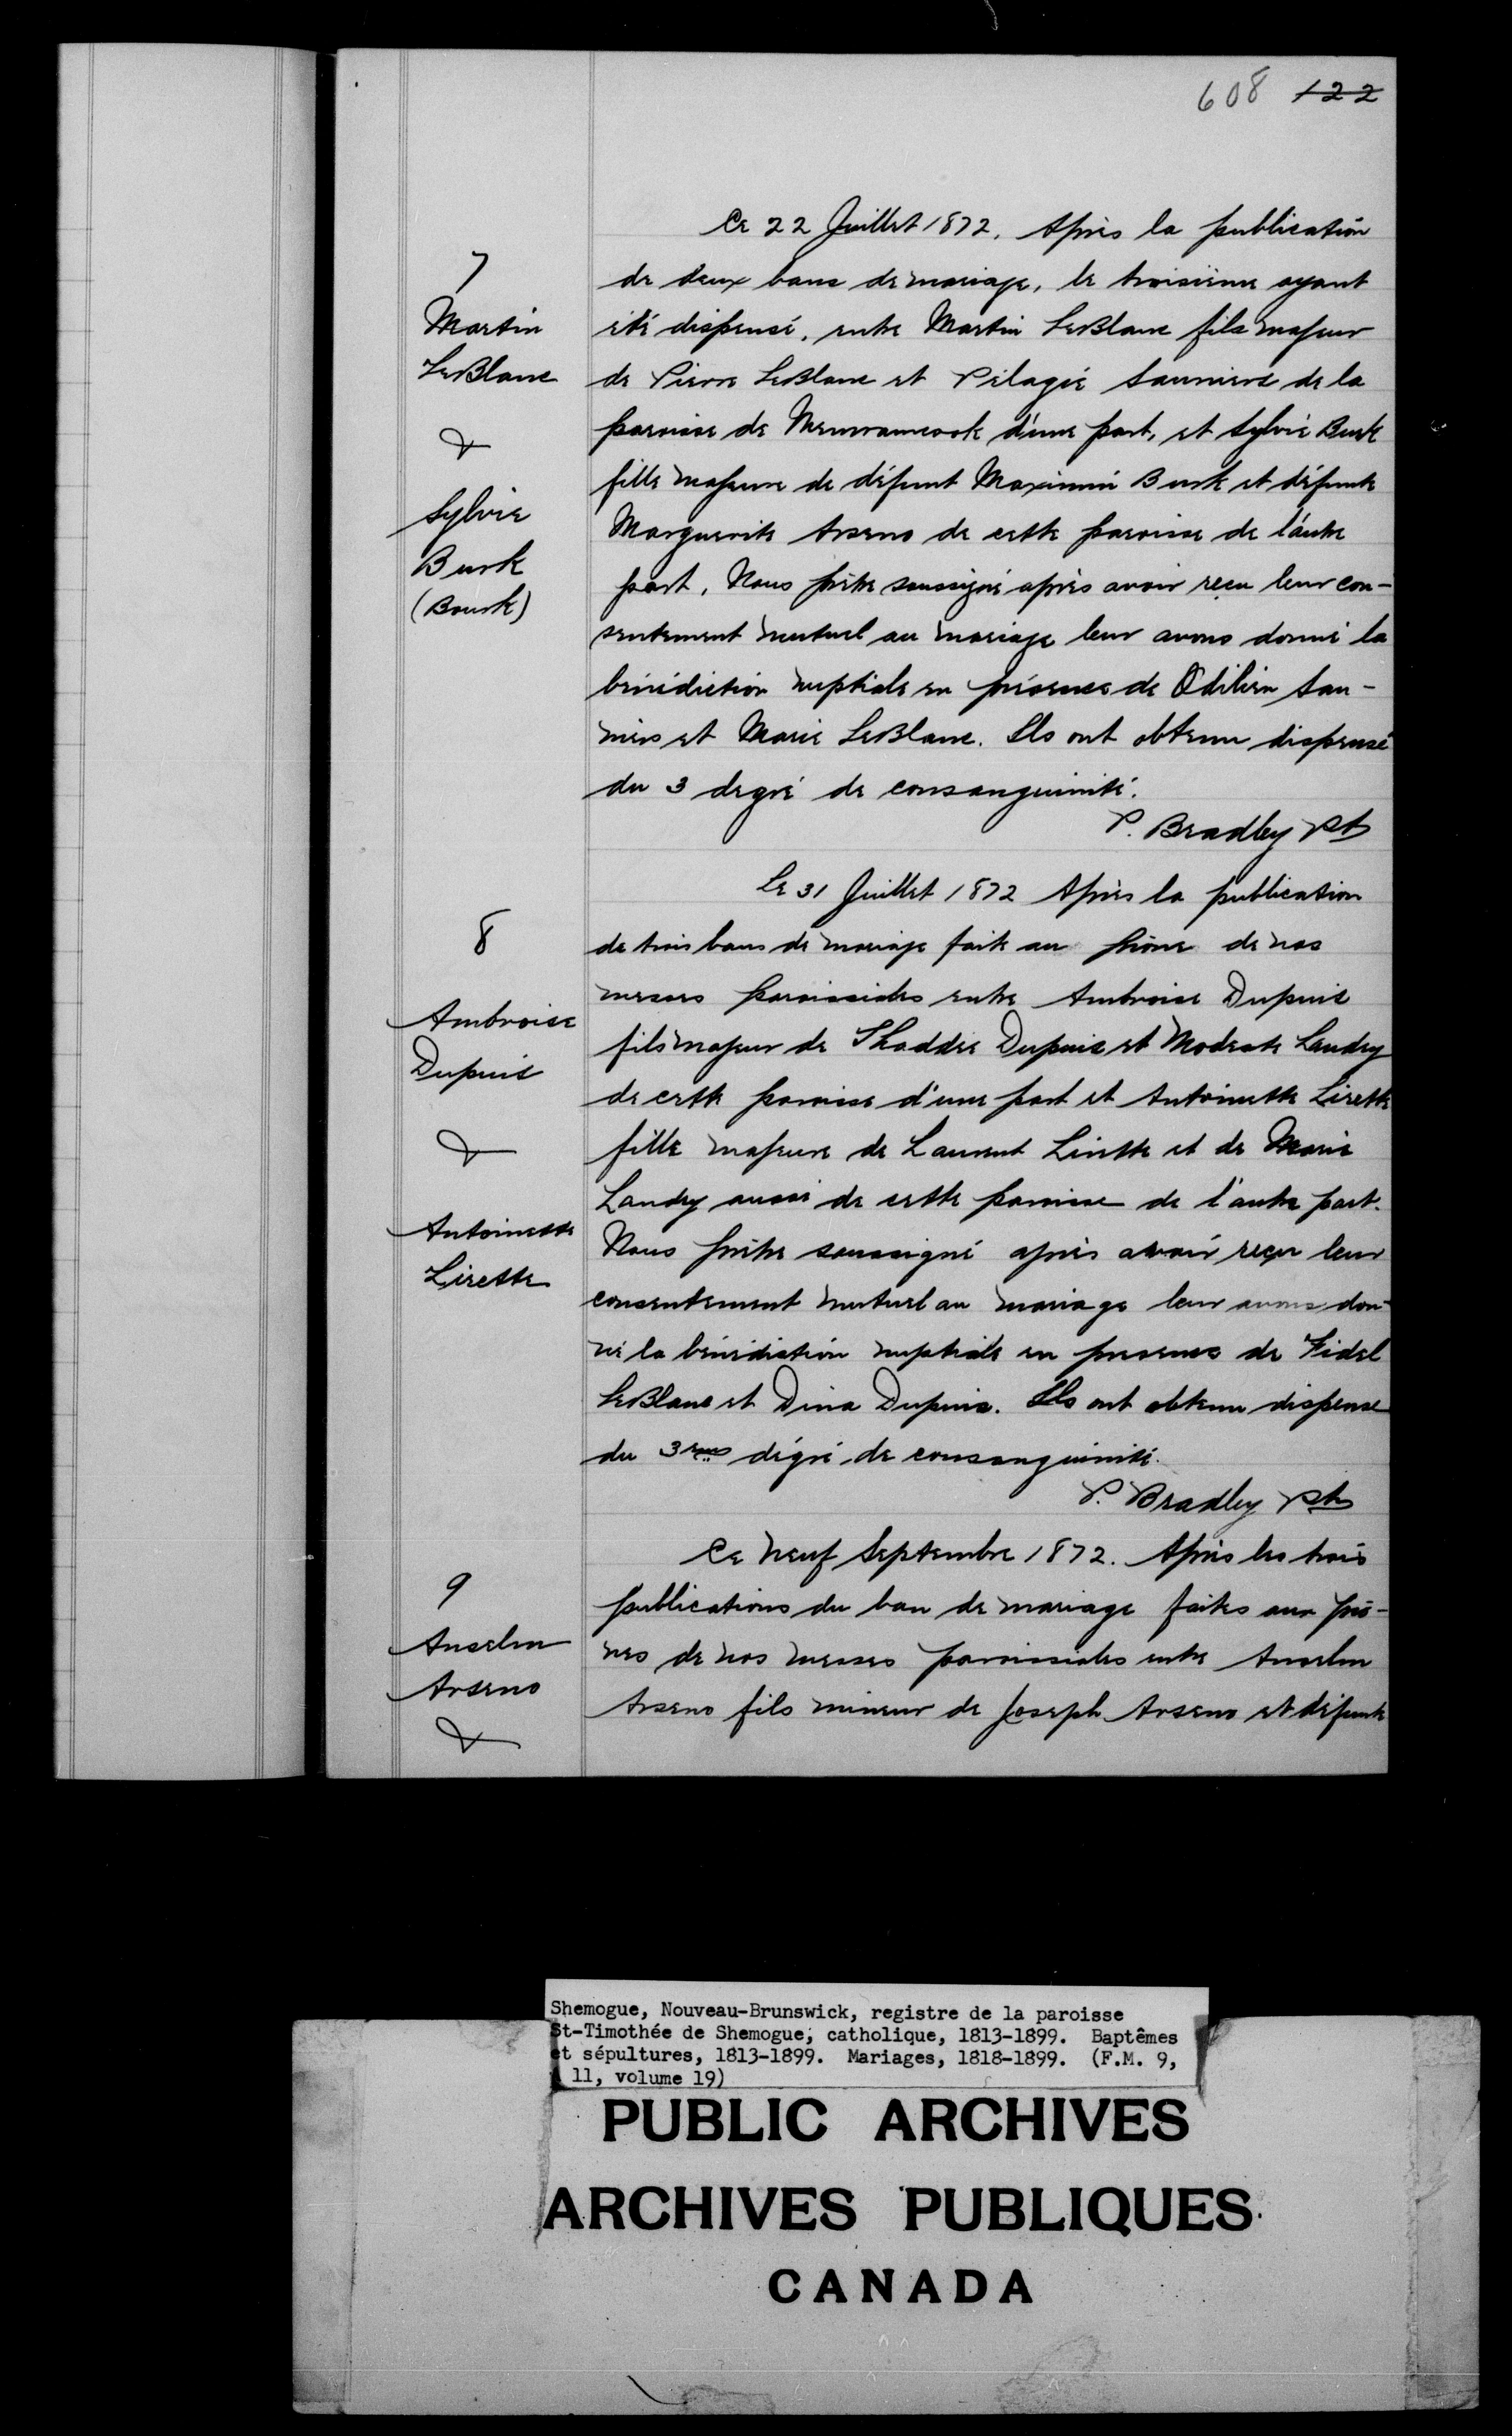 608 122
7
Martin
LeBlanc
&
Sylvie
Burk
(Bourk)
Ce 22 Juillet 1872. Après la publication
de deux bans de mariage, le troisième ayant
été dispensé, entre Martin LeBlanc fils majeur
de Pierre LeBlanc et Pélagie Sauniers de la
paroisse de Memramcook d'une part, et Sylvie Burk
fille majeure de défunt Maximin Burk et défunte
Marguerite Arseno de cette paroisse de l'autre
part. Nous prêtre soussigné après avoir reçu leur con-
sentement mutuel au mariage leur avons donné la
bénédiction nuptiale en présence de Odilien Sau-
niers et Marie LeBlanc. Ils ont obtenu dispense
du 3 degré de consanguinité.
P. Bradley Pt
8
Ambroise
Dupuis
&
Antoinette
Lirette
Le 31 Juillet 1872 Après la publication
de trois bans de mariage faite au prône de nos
messes paroissiales entre Ambroise Dupuis
fils majeur de Thaddée Dupuis et Modeste Landry
de cette paroisse d'une part et Antoinette Lirette
fille majeure de Laurent Lirette et de Marie
Landry aussi de cette paroisse de l'autre part.
Nous prêtre soussigné après avoir reçu leur
consentement mutuel au mariage leur avons don-
né la bénédiction nuptiale en presence de Fidel
LeBlanc et Dina Dupuis. Ils ont obtenu dispense
du 3eme dégré de consanguinité.
P. Bradley Pt
9
Anselm
Arseno
&
Ce neuf Septembre 1872. Après les trois
publications du ban de mariage faites aux prô-
nes de nos messes paroissiales entre Anselm
Arseno fils mineur de Joseph Arseno et défunte
Shemogue, Nouveau-Brunswick, registre de la paroisse
St-Timothée de Shemogue, catholique, 1813-1899. Baptêmes
et sépultures, 1813-1899. Mariages, 1818-1899. (F.M. 9,
11, volume 19)
PUBLIC ARCHIVES
ARCHIVES PUBLIQUES
CANADA